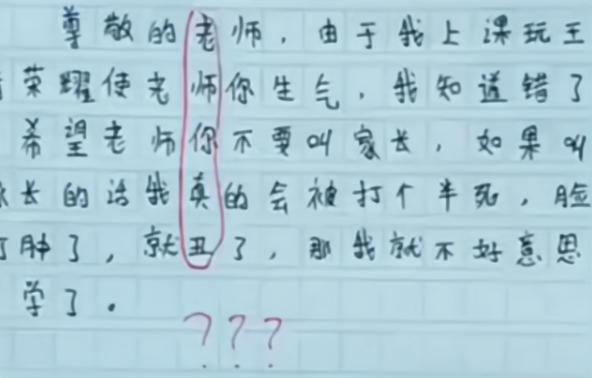 尊敬的老师，由于我上课玩王
荣耀使老师你生气，我知道错了
希望老师你不要叫家长，如果叫
长的话我真的会被打个半死，脸
肿了，就丑了，那我就不好意思
学了。
???